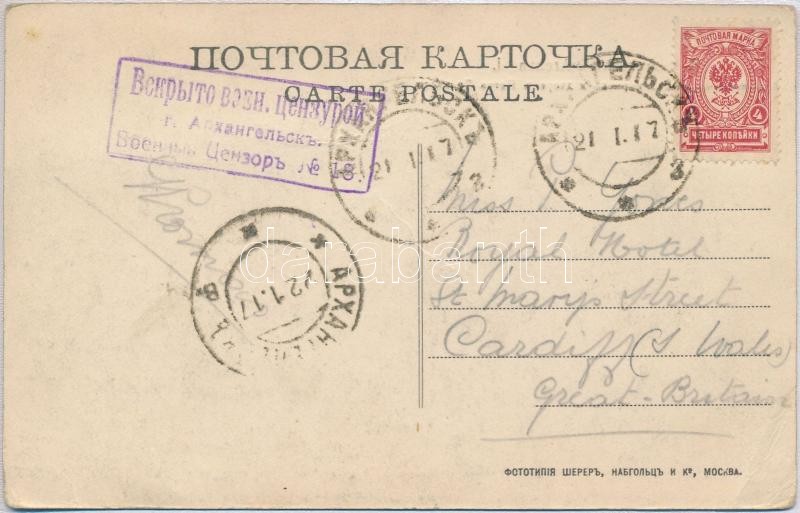 ПОЧТОВАЯ КАРТОЧКА
CARTE POSTALE.
ПОЧТОВАЯ МАРКА
4
ЧЕТЫРЕ КОПѢЙКИ
Вскрыто воен. цензурой
г. Архангельскъ.
Военный Цензоръ № 18.
АРХАНГЕЛЬСКЪ
21 1.17
3
АРХАНГЕЛЬСК
21 1.17
3
АРХАНГЕЛ
22.1.17
Miss Jones
Royal Hotel
St Marys Street
Cardiff (S Wales)
Great-Britain
darabanth
ФОТОТИПІЯ ШЕРЕРЪ, НАБГОЛЬЦЪ И Кº, МОСКВА.